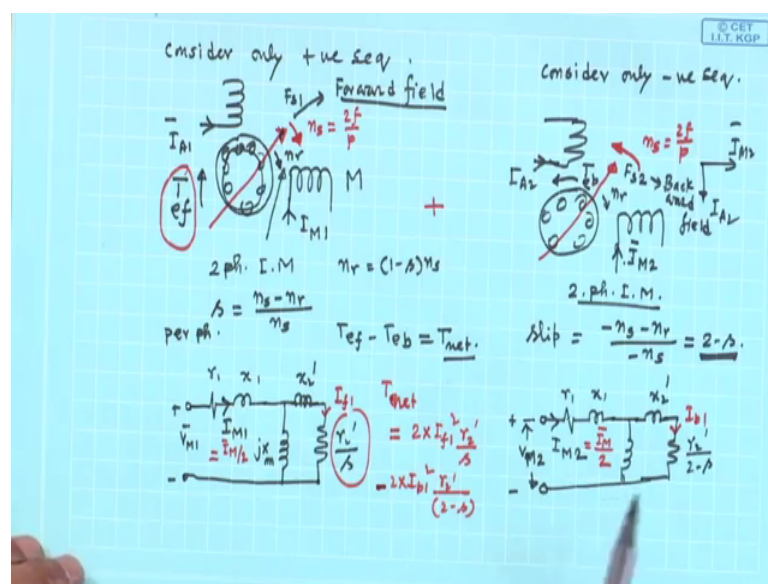 © CET
I.I.T. KGP
Consider only +ve seq.
Fs1
Forward field
ns = 2f/p
I̅A1
nr
Tef
M
IM1
2 ph. I.M
nr = (1-s)ns
s = (ns - nr)/ns
per ph.
Tef - Teb = Tnet.
r1 x1 x2'
If1
+
V̅M1
IM1
= I̅M/2
jxm
r2'/s
-
Tnet
= 2 x If1² r2'/s
- 2x Ib1² r2'/(2-s)
+
Consider only -ve seq.
ns = 2f/p
I̅M2
IA2
Teb
Fs2
Back
ward
field
IA2
nr
I̅M2
2. ph. I.M.
slip = (-ns - nr)/-ns = 2-s.
r1 x1 x2'
Ib1
+
V̅M2
IM2 = I̅M/2
r2'/2-s
-